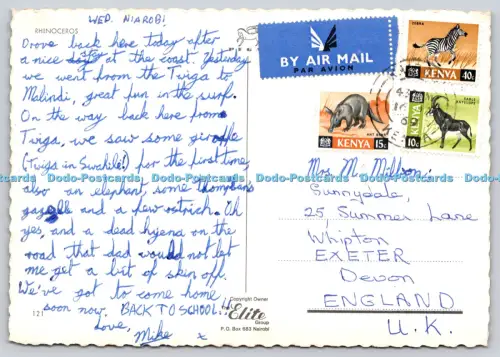 WED. NIAROBI
RHINOCEROS
Drove back here today after
a nice stay at the coast. Yesterday
we went from the Twiga to
Malindi, great fun in the surf.
On the way back here from
Twiga, we saw some giraffe
(Twiga in Swahili) for the first time,
also an elephant, some thompsons
gazelle and a few ostrich. Oh
yes, and a dead hyena on the
road that dad would not let
me get a bit of skin off.
We've got to come home
soon now. BACK TO SCHOOL!
Love,
Mike x
121
BY AIR MAIL
PAR AVION
ZEBRA
KENYA 40c
ANT BEAR
KENYA 15c
SABLE ANTELOPE
KENYA
10c
Mrs. M.
Sunnydale,
25 Summer Lane
Whipton
EXETER
Devon
ENGLAND
U.K.
Copyright Owner
Elite
Group
P. O. Box 683 Nairobi
Dodo-Postcards Dodo-Postcards Dodo-Postcards Dodo-Postcards
Dodo-Postcards Dodo-Postcards Dodo-Postcards Dodo-Postcards